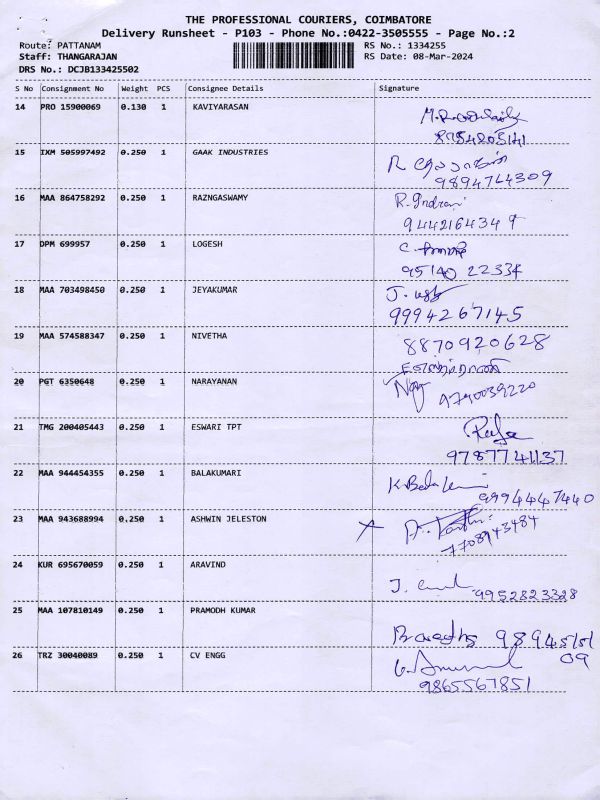 THE PROFESSIONAL COURIERS, COIMBATORE
Delivery Runsheet - P103 - Phone No.:0422-3505555 - Page No.:2
Route: PATTANAM RS No.: 1334255
Staff: THANGARAJAN RS Date: 08-Mar-2024
DRS No.: DCJB133425502
S No Consignment No Weight PCS Consignee Details Signature
14 PRO 15900069 0.130 1 KAVIYARASAN
15 IXM 505997492 0.250 1 GAAK INDUSTRIES
9894744309
16 MAA 864758292 0.250 1 RAZNGASWAMY R. Indrani
9442164349
17 DPM 699957 0.250 1 LOGESH
95140 22334
18 MAA 703498450 0.250 1 JEYAKUMAR
9994267145
19 MAA 574588347 0.250 1 NIVETHA 8870920628
20 PGT 6350648 0.250 1 NARAYANAN 9790039220
21 TMG 200405443 0.250 1 ESWARI TPT
9787741137
22 MAA 944454355 0.250 1 BALAKUMARI
9994447440
23 MAA 943688994 0.250 1 ASHWIN JELESTON
7708943484
24 KUR 695670059 0.250 1 ARAVIND
9952823328
25 MAA 107810149 0.250 1 PRAMODH KUMAR
26 TRZ 30040089 0.250 1 CV ENGG 09
9865567851